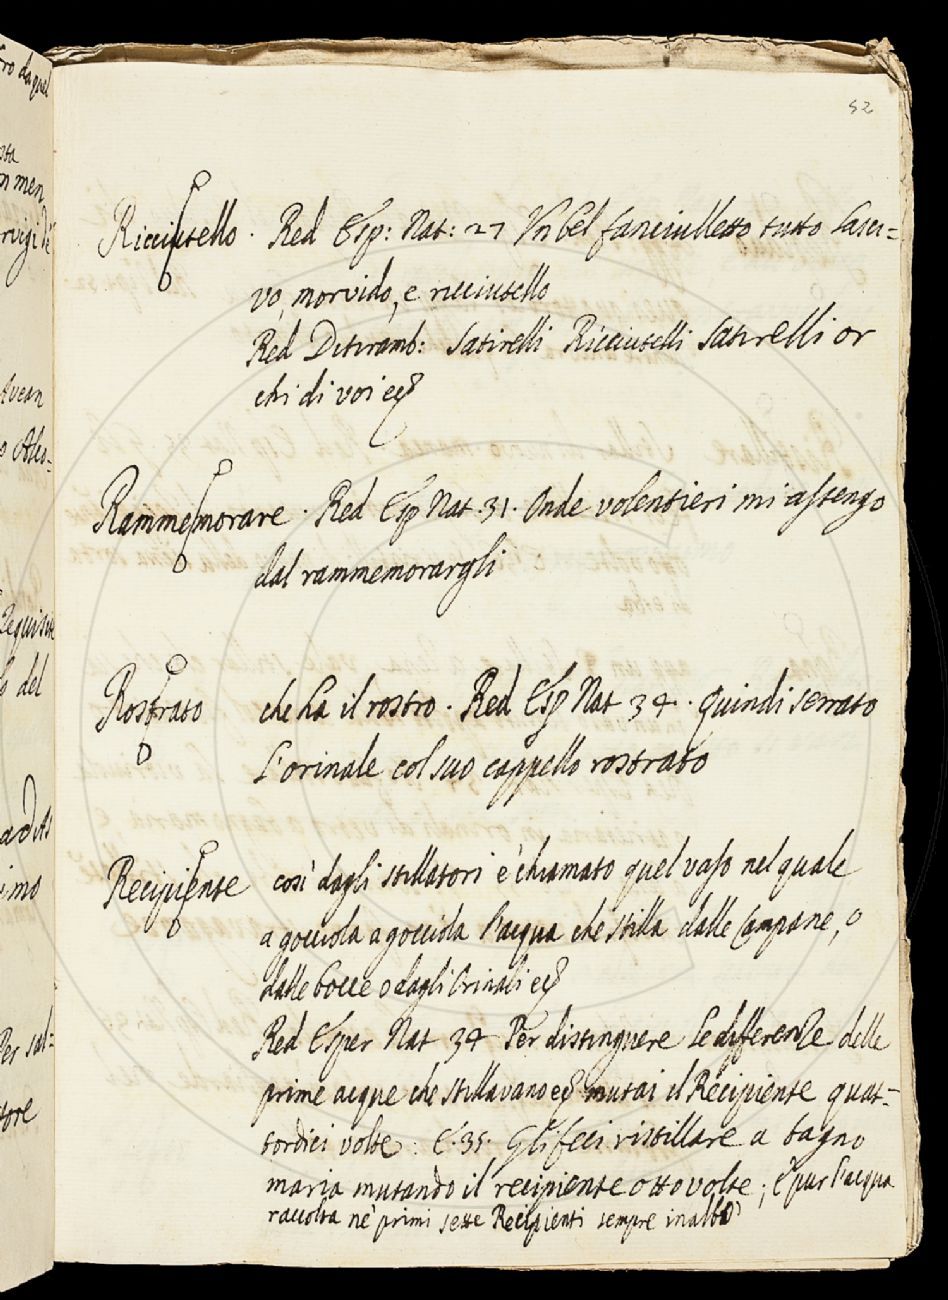 52
Ricciutello. Red Esp: Nat: 27 Un bel fanciulletto tutto lasci=
vo, morvido, e ricciutello
Red Ditiramb: Satirelli Ricciutelli Satirelli or
chi di voi ec
Rammemorare. Red Esp Nat. 31. Onde volentieri mi astengo
dal rammemorargli
Rostrato che ha il rostro. Red Esp Nat 34. quindi serrato
l'orinale col suo cappello rostrato
Recipiente così dagli stillatori è chiamato quel vaso nel quale
a gocciola a gocciola l'acqua che stilla dalle Campane, o
dalle bocce o dagli Orinali ec
Red Esper Nat 34 Per distinguere le differenze delle
prime acque che stillavano ec mutai il Recipiente quat=
tordici volte: E. 35. Gli feci ristillare a bagno
maria mutando il recipiente otto volte; E pur l'acqua
raccolta ne' primi sette Recipienti sempre inalbò
ro da quel
sta
n men
Avean
o Alco=
Requisite
lo del
imo
Per sal=
tore